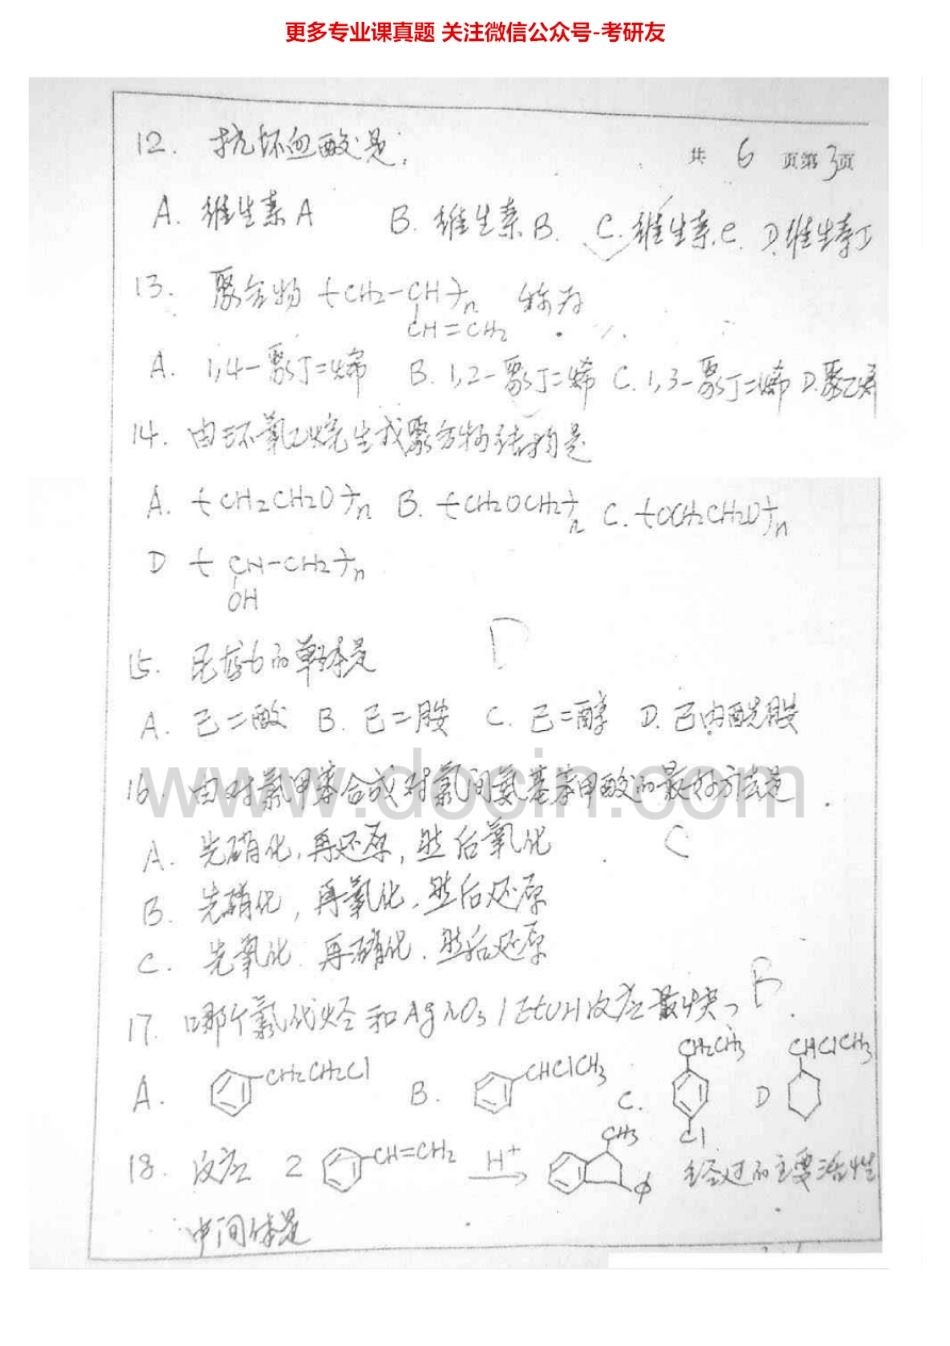 更多专业课真题 关注微信公众号-考研友
共 6 页第3页
12. 抗坏血酸是:
A. 维生素A B. 维生素B. C. 维生素C. D.维生素D
13. 聚合物 +CH2-CH+n 称为
CH=CH2
A. 1,4-聚丁二烯 B. 1,2-聚丁二烯 C. 1,3-聚丁二烯 D.聚乙烯
14. 由环氧乙烷生成聚合物结构是
A. +CH2CH2O+n B. +CH2OCH2+n C. +OCH2CH2O+n
D +CH-CH2+n
OH
15. 尼龙6的单体是 D
A. 己二酸 B. 己二胺 C. 己二醇 D. 己内酰胺
16. 由对氯甲苯合成对氯间氨基苯甲酸的最好方法是.
A. 先硝化,再还原,然后氧化 C
B. 先硝化,再氧化.然后还原
C. 先氧化.再硝化.然后还原
17. 哪个氯代烃和AgNO3/EtOH反应最快? B
A. CH2CH2Cl B. CHClCH3 C. CH2CH3 Cl D CHClCH3
18. 反应 2 CH=CH2 H+ CH3 φ 经过的主要活性
中间体是
www.docin.com